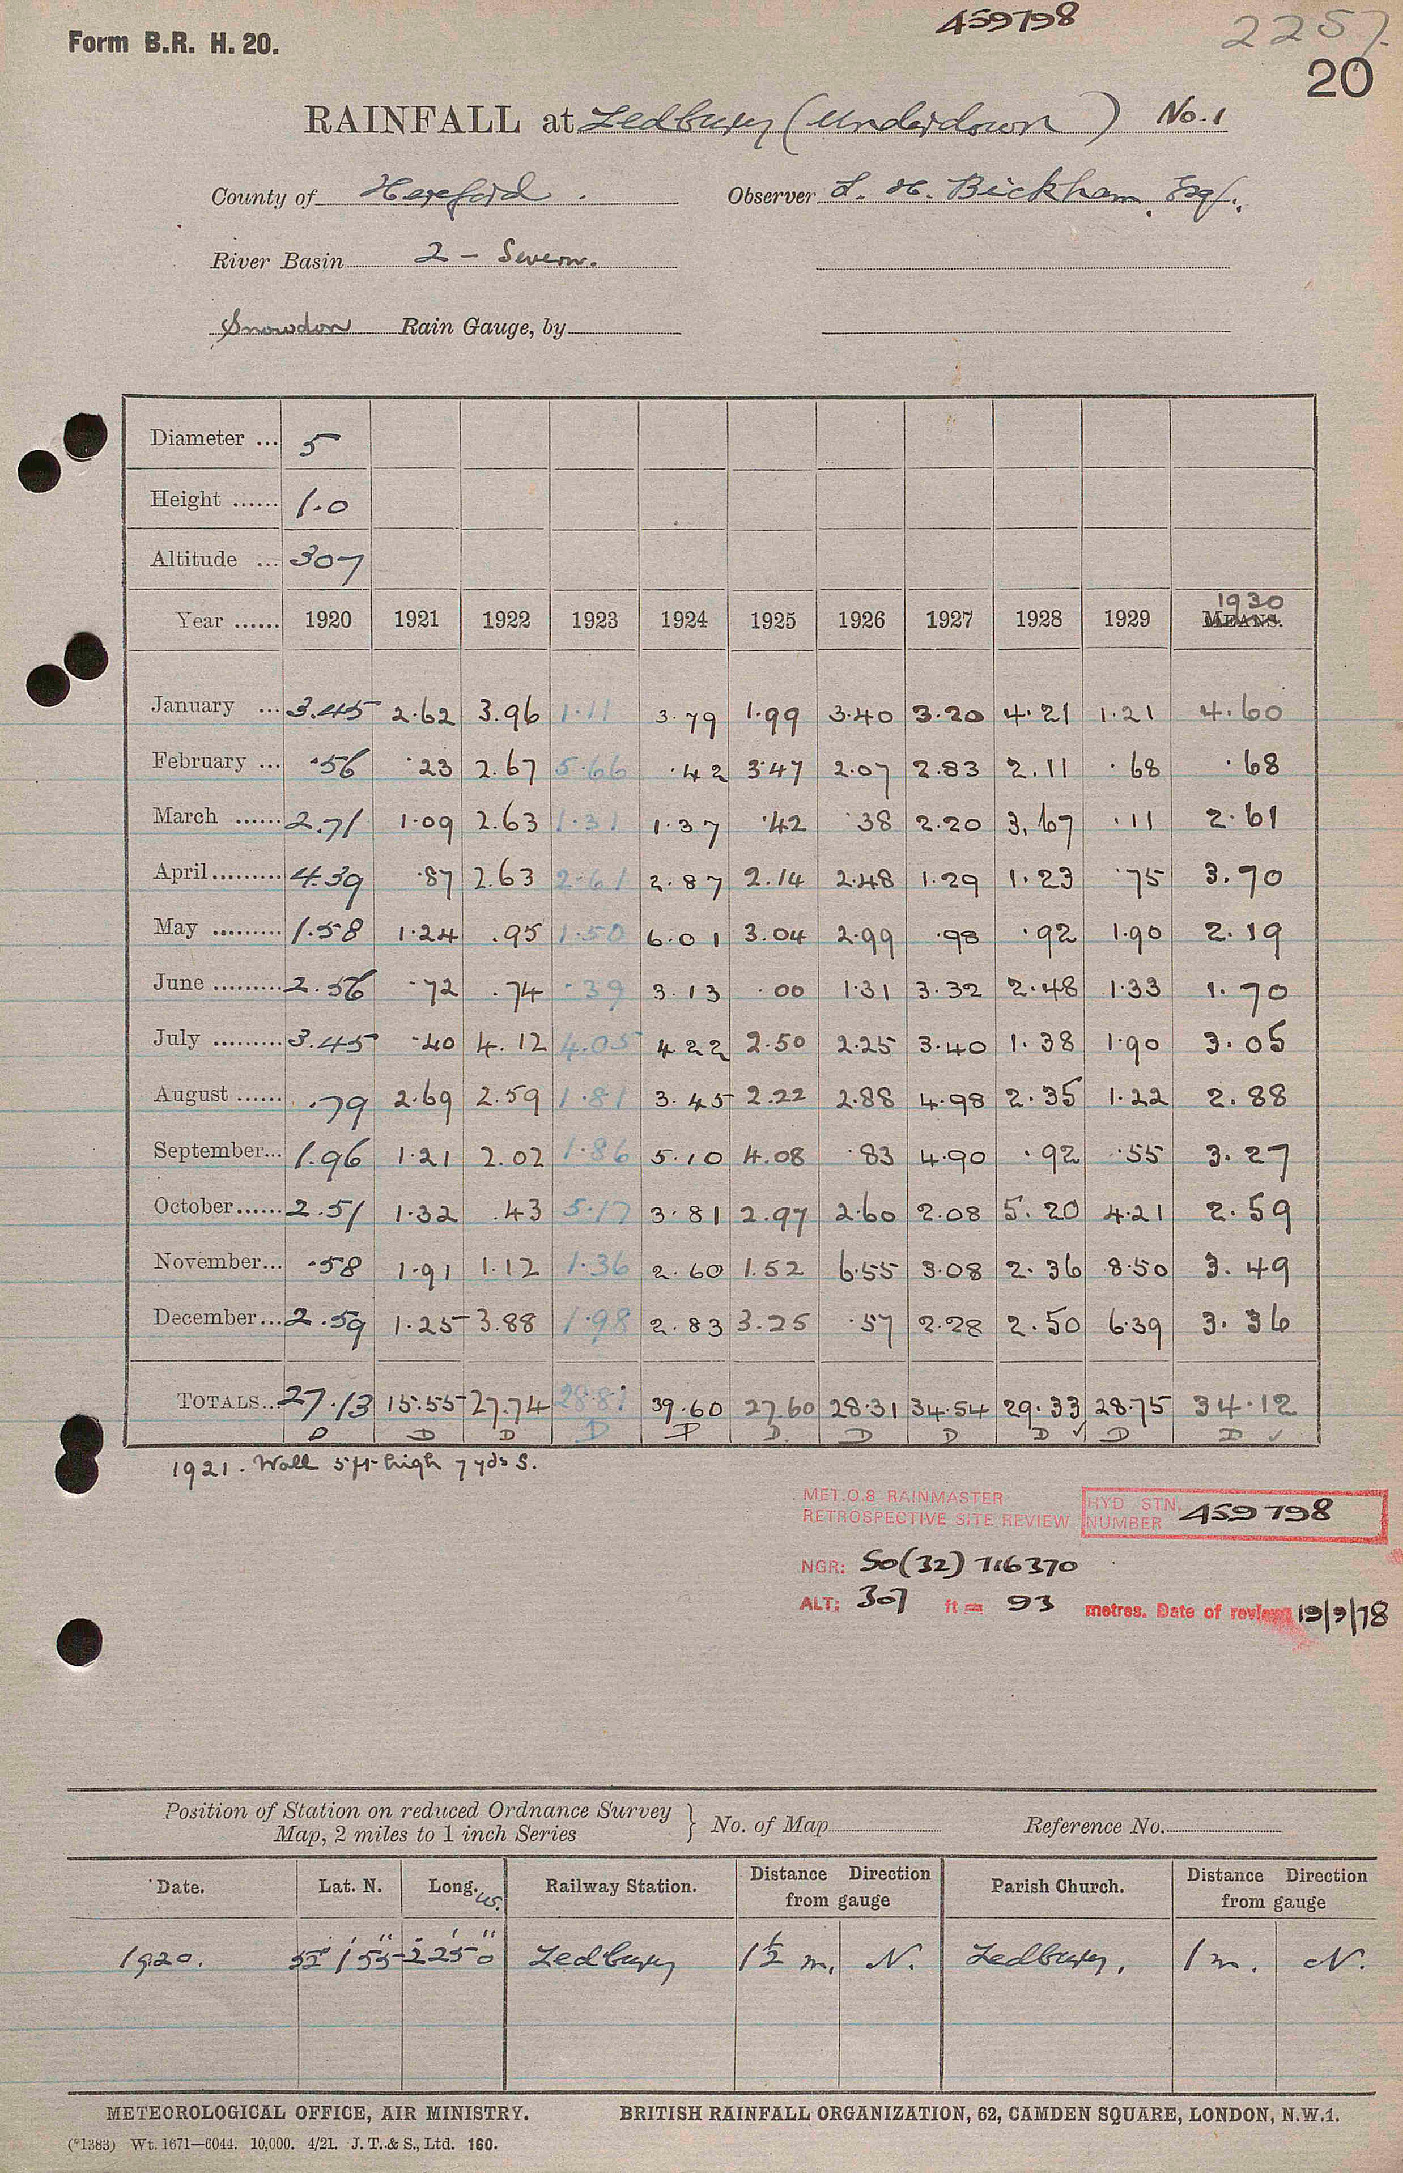 459798
2257.
Form B.R. H. 20.
20
RAINFALL at Ledbury (Underdown) No. 1
County of Hereford. Observer L. H. Bickham, Esq.
River Basin 2 - Severn.
Snowdon Rain Gauge, by
Diameter ... 5
Height ...... 1.0
Altitude ... 307
1930
Year ...... 1920 1921 1922 1923 1924 1925 1926 1927 1928 1929 MEANS.
January ... 3.45 2.62 3.96 1.11 3.79 1.99 3.40 3.20 4.21 1.21 4.60
February ... .56 .23 2.67 5.66 .42 3.47 2.07 2.83 2.11 .68 .68
March ...... 2.71 1.09 2.63 1.31 1.37 .42 .38 2.20 3.67 .11 2.61
April......... 4.39 .87 2.63 2.61 2.87 2.14 2.48 1.29 1.23 .75 3.70
May ......... 1.58 1.24 .95 1.50 6.01 3.04 2.99 .98 .92 1.90 2.19
June ......... 2.56 .72 .74 .39 3.13 .00 1.31 3.32 2.48 1.33 1.70
July ......... 3.45 .40 4.12 4.05 4.22 2.50 2.25 3.40 1.38 1.90 3.05
August ...... .79 2.69 2.59 1.81 3.45 2.22 2.88 4.98 2.35 1.22 2.88
September... 1.96 1.21 2.02 1.86 5.10 4.08 .83 4.90 .92 .55 3.27
October...... 2.51 1.32 .43 5.17 3.81 2.97 2.60 2.08 5.20 4.21 2.59
November... .58 1.91 1.12 1.36 2.60 1.52 6.55 3.08 2.36 8.50 3.49
December... 2.59 1.25 3.88 1.98 2.83 3.25 .57 2.28 2.50 6.39 3.36
TOTALS... 27.13 15.55 27.74 28.81 39.60 27.60 28.31 34.54 29.33 28.75 34.12
D D D D D D D D D ✓ D D ✓
1921. Wall 5 ft high 7 yds S.
MET.O.8 RAINMASTER
RETROSPECTIVE SITE REVIEW
HYD STN.
NUMBER 459798
NGR: SO(32) 716370
ALT: 307 ft = 93 metres. Date of review 19/9/78
Position of Station on reduced Ordnance Survey
Map, 2 miles to 1 inch Series } No. of Map Reference No.
Date. Lat. N. Long. W. Railway Station. Distance Direction from gauge Parish Church. Distance Direction from gauge
1920. 52° 1' 55" 2° 25' 0" Ledbury 1½ m. N. Ledbury, 1 m. N.
METEOROLOGICAL OFFICE, AIR MINISTRY. BRITISH RAINFALL ORGANIZATION, 62, CAMDEN SQUARE, LONDON, N.W.1.
(*1383) Wt. 1671—6044. 10,000. 4/21. J. T. & S., Ltd. 160.